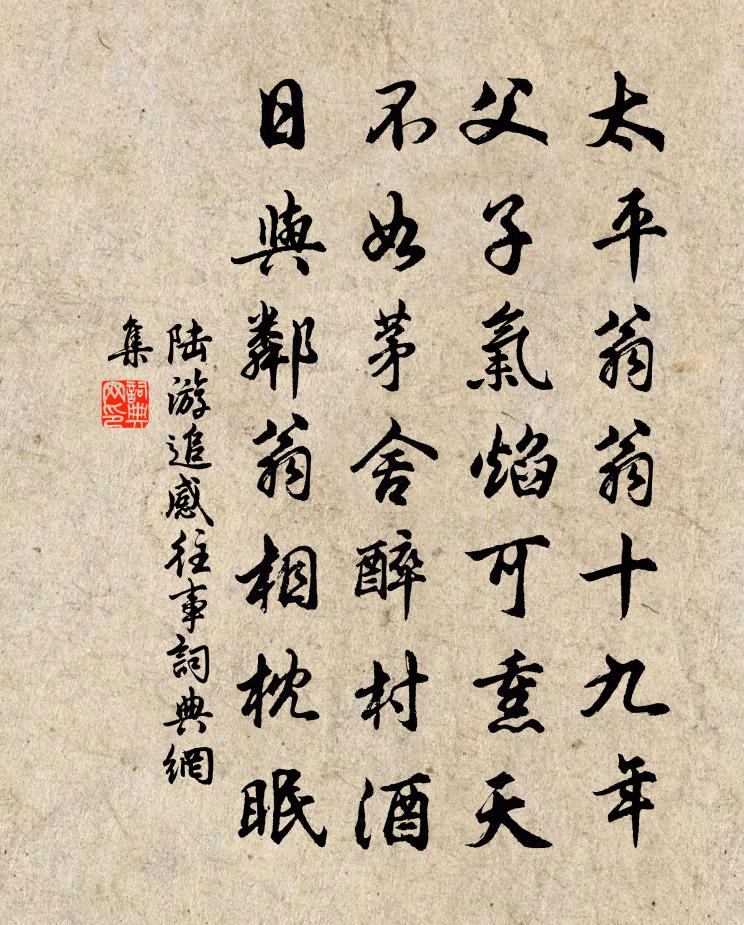 太平翁翁十九年
父子氣焰可熏天
不如茅舍醉村酒
日與鄰翁相枕眠
陆游追感往事詞典網
集
詞典
网印